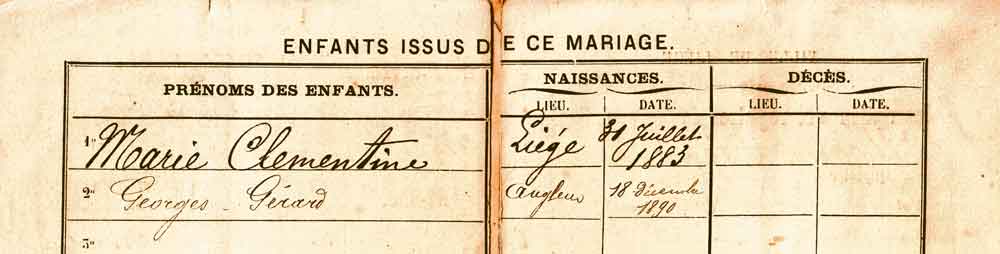 ENFANTS ISSUS DE CE MARIAGE.
PRÉNOMS DES ENFANTS. NAISSANCES. DÉCÈS.
LIEU. DATE. LIEU. DATE.
1° Marie Clementine Liége 31 Juillet 1883
2° Georges Gérard Angleur 18 décembre 1890
3°